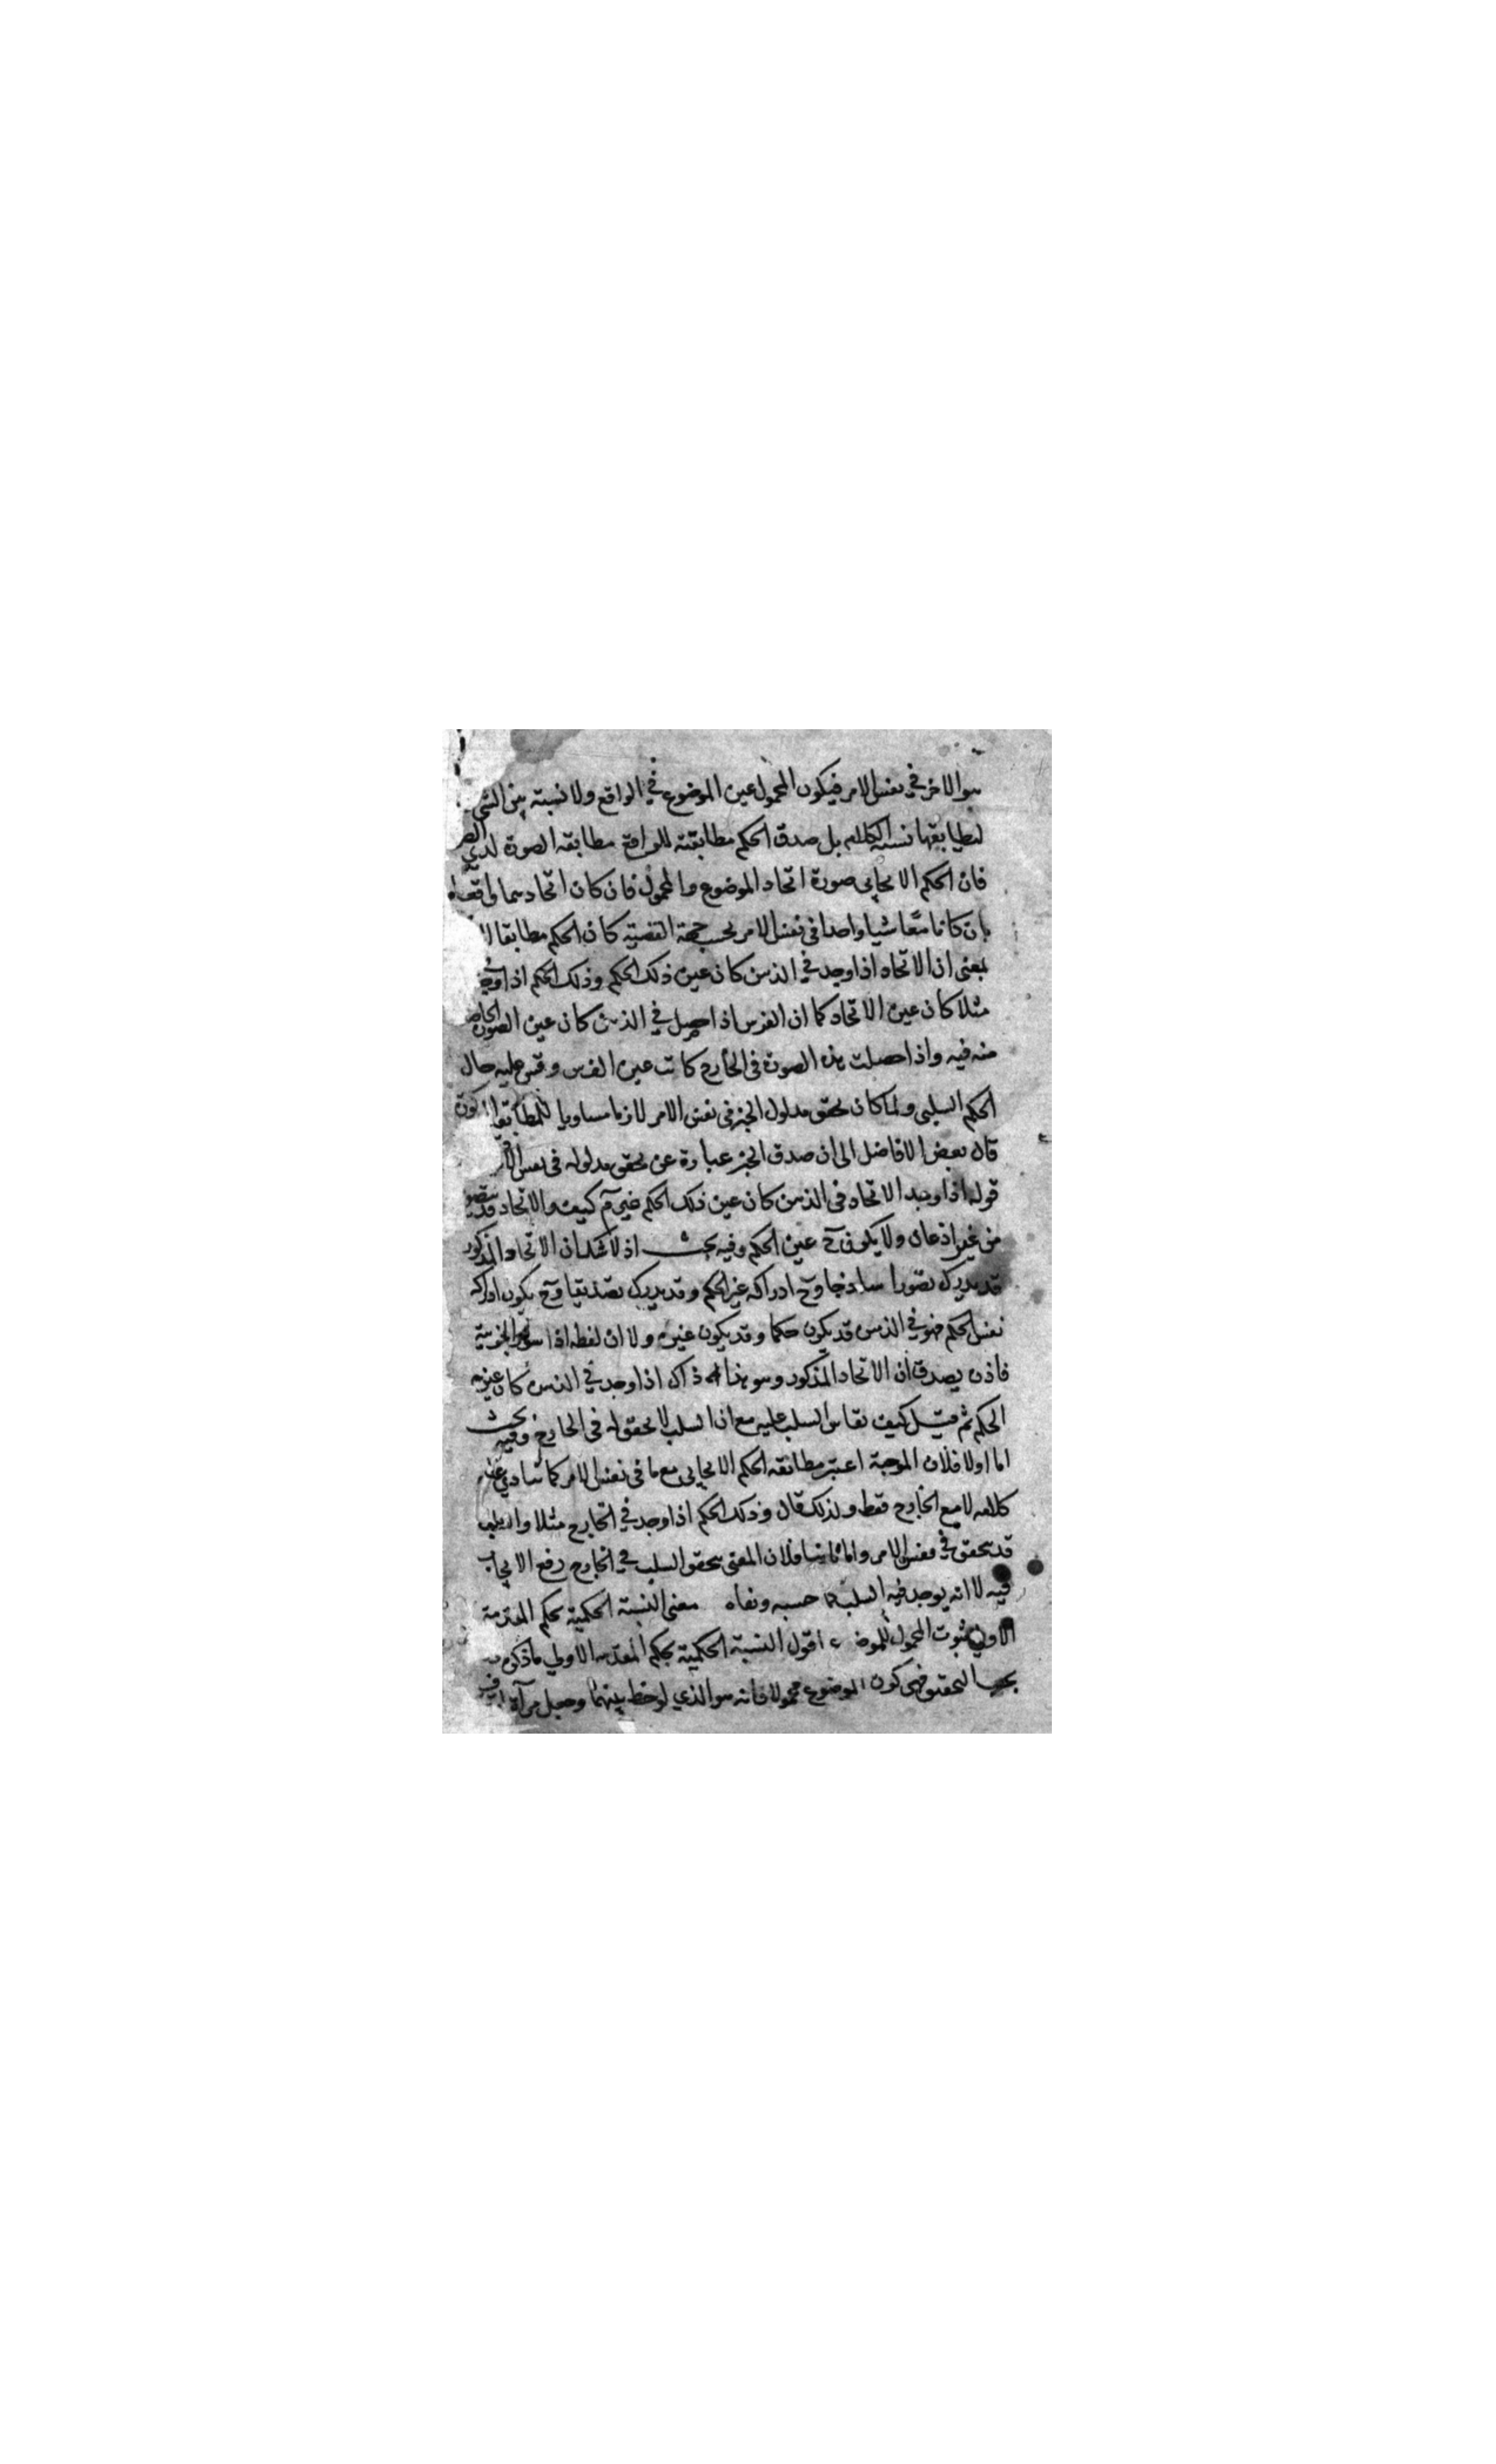 هو الاخر في نفس الامر فيكون المحمول عين الموضوع في الواقع ولا نسبة بين الشي
لتطابقها نسبة الكلام بل صدق الحكم مطابقته للواقع مطابقه الصورة لذي
فان الحكم الايجابي صورة اتحاد الموضوع والمحمول فان كان اتحادهما واقعا
بان كانا معا شيا واحدا في نفس الامر بحسب جهة القضية كان الحكم مطابقا
بمعنى ان الاتحاد اذا وجد في الذهن كان عين ذلك الحكم وذلك الحكم اذا وجد
مثلا كان عين الاتحاد كما ان الفرس اذا حصل في الذهن كان عين الصورة
منه فيه واذا حصلت هذه الصورة في الخارج كانت عين الفرس وقس عليه حال
الحكم السلبي ولما كان تحقق مدلول الخبر في نفس الامر لازما مساويا للمطابقة
قال بعض الافاضل الى ان صدق الخبر عبارة عن تحقق مدلوله في نفس الامر
قوله اذا وجد الاتحاد في الذهن كان عين ذلك الحكم غير م كيف والاتحاد قد يتصور
من غير اذعان ولا يكون ح عين الحكم وفيه بحث اذ لا شك ان الاتحاد المذكور
قد يدرك تصورا ساذجا وح ادراكه غير الحكم وقد يدرك تصديقا وح يكون ادراكه
نفس الحكم فهو في الذهن قد يكون حكما وقد يكون غيره ولا ان لفظه اذا الجزئية
فاذن يصدق ان الاتحاد المذكور وهو هذا ذاك اذا وجد في الذهن كان عين
الحكم ثم قيل كيف تقاس السلب عليه مع ان السلب لا تحقق له في الخارج وفيه بحث
اما اولا فلان الموجبة اعتبر مطابقه الحكم الايجابي مع ما في نفس الامر كما ينادي عنه
كلامه لا مع الخارج فقط ولذلك قال وذلك الحكم اذا وجد في الخارج مثلا والسلب
قد يتحقق في نفس الامر واما ثانيا فلان المعنى بتحقق السلب في الخارج رفع الايجاب
فيه لا انه يوجد فيه السلب كما حسبه ونفاه معنى النسبة الحكمية بحكم المقدمة
الاولى ثبوت المحمول للموضوع اقول النسبة الحكمية بحكم المقدمه الاولى ما ذكره
بحسب التحقيق فهي كون الموضوع محمولا فانه هو الذي لوحظ بينهما وجعل مرآة